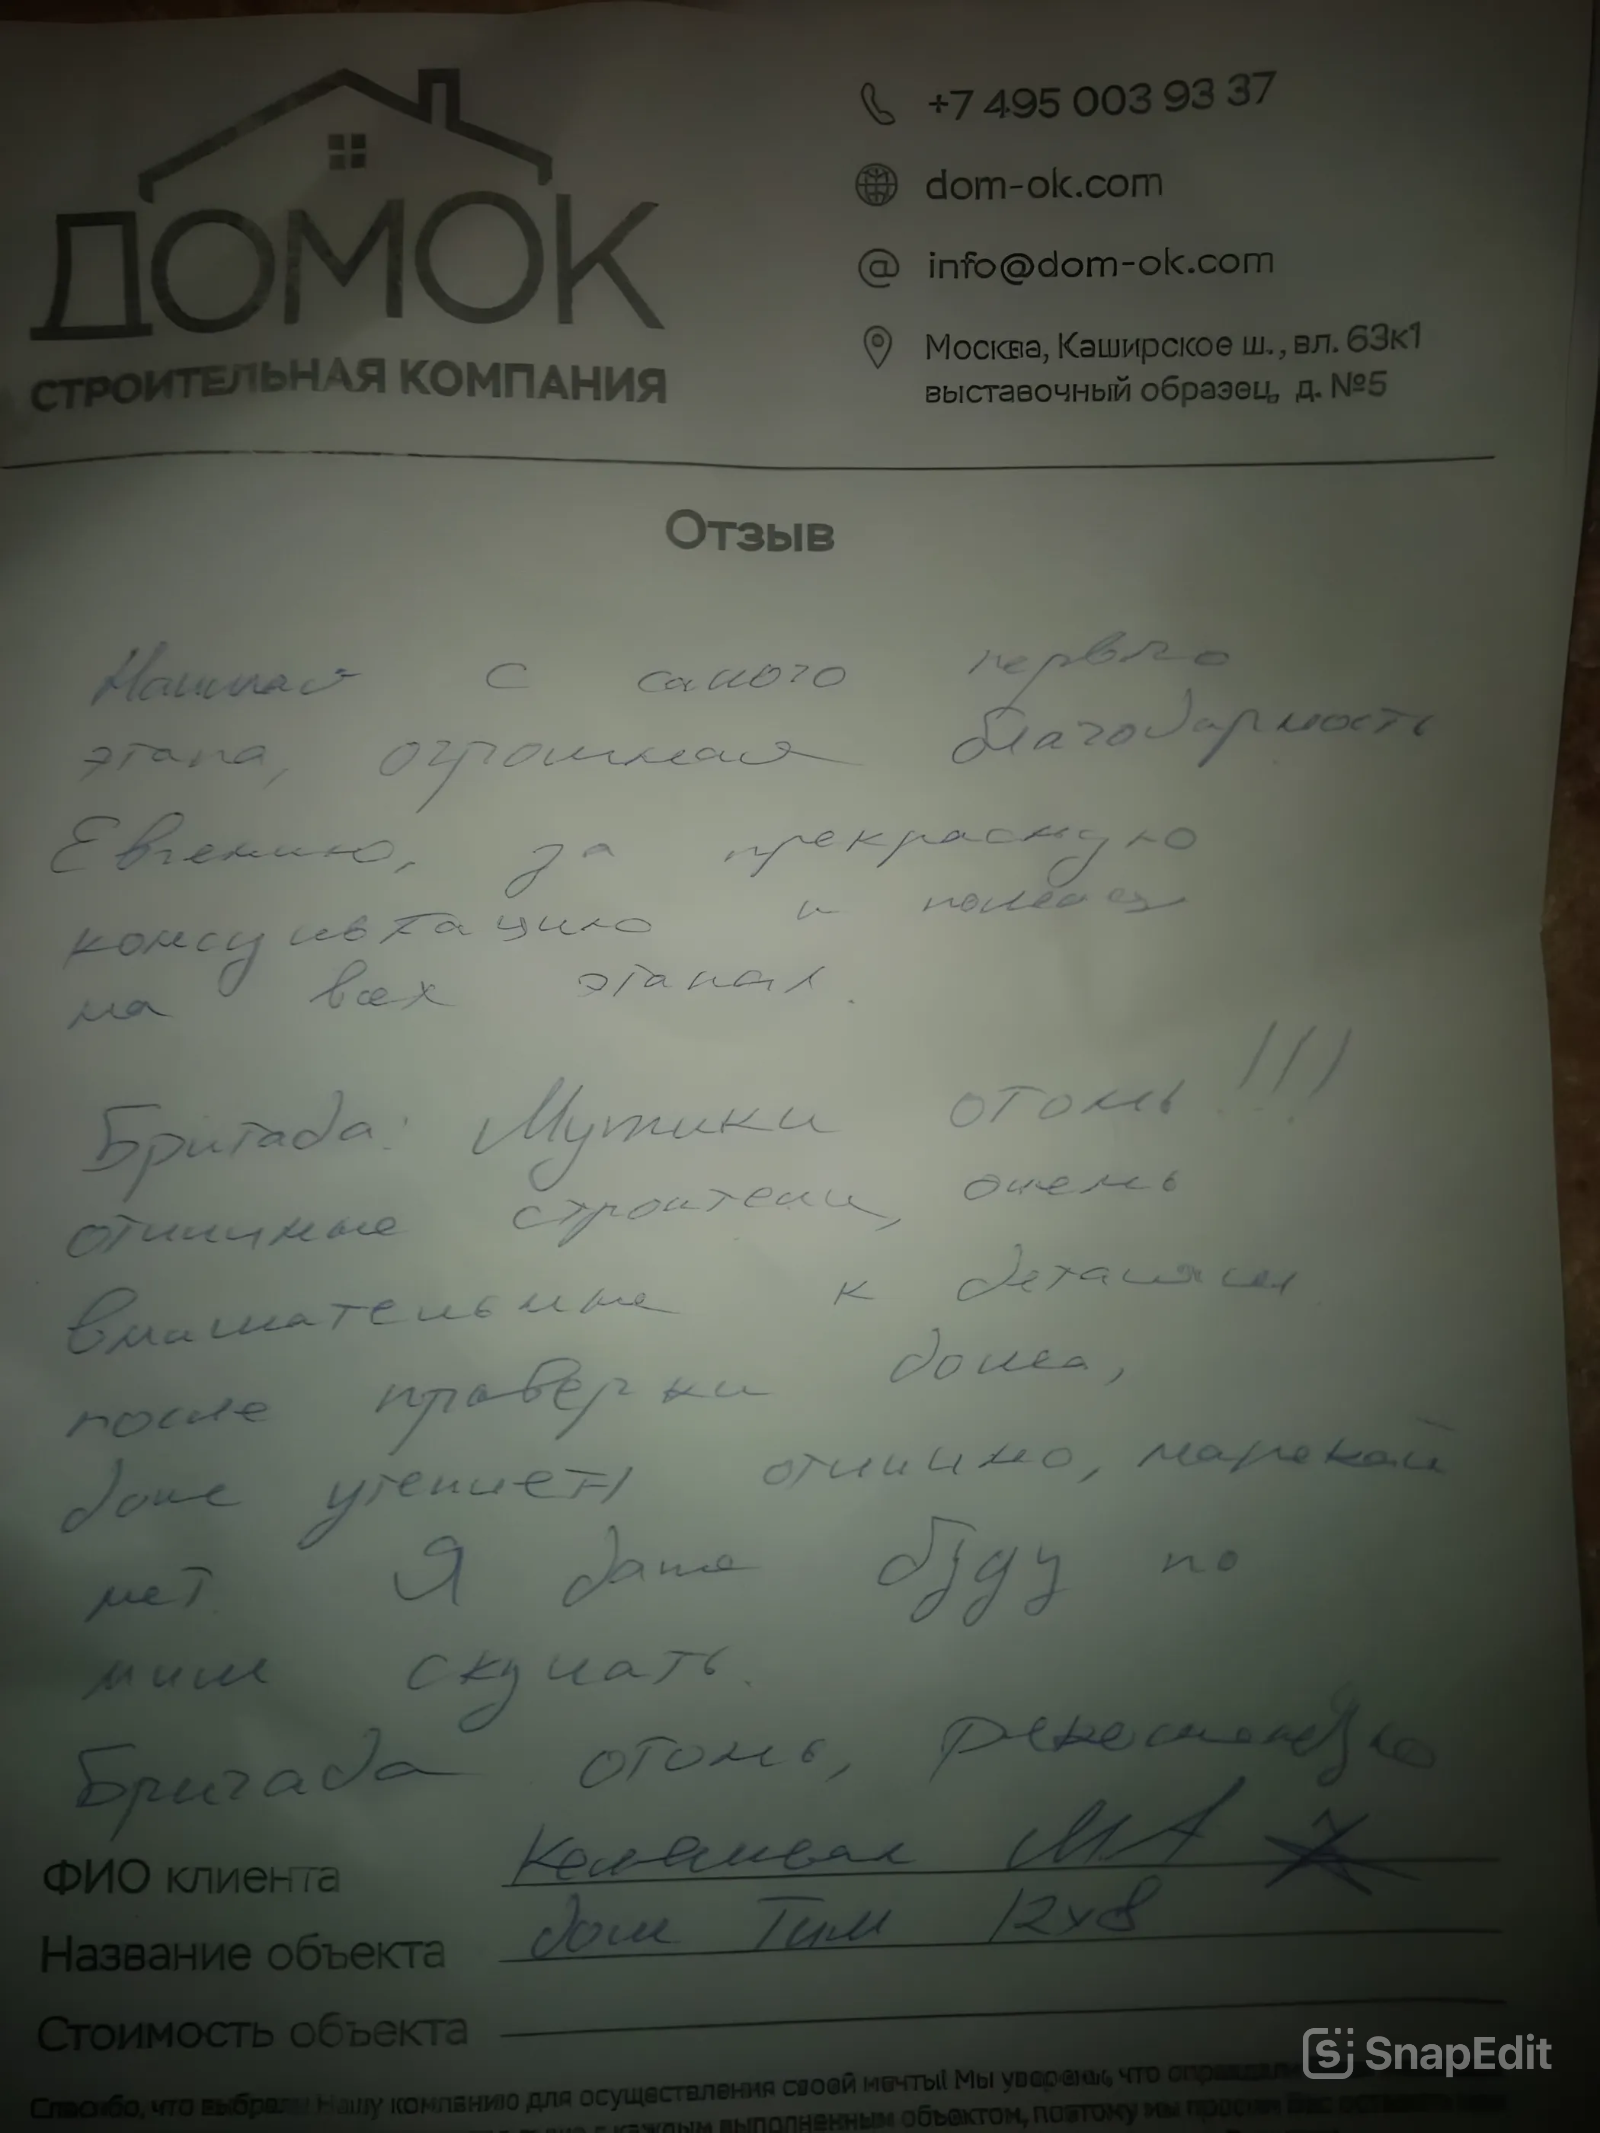 ДОМОК
СТРОИТЕЛЬНАЯ КОМПАНИЯ
+7 495 003 93 37
dom-ok.com
info@dom-ok.com
Москва, Каширское ш., вл. 63к1
выставочный образец, д. №5
Отзыв
с самого первого
этапа, огромная благодарность
Евгению, за прекрасную
консультацию и помощь
на всех этапах.
Бригада: Мужики огонь!!!
отличные строители, очень
внимательные к деталям
после проверки дома,
дом утеплён отлично, нареканий
нет. Я даже буду по
ним скучать.
Бригада огонь, рекомендую
ФИО клиента МА
Название объекта дом Тим 12х8
Стоимость объекта
Спасибо, что выбрали Нашу компанию для осуществления своей мечты! Мы уверены, что
каждым выполненным объектом, поэтому мы просим Вас оставить
SnapEdit